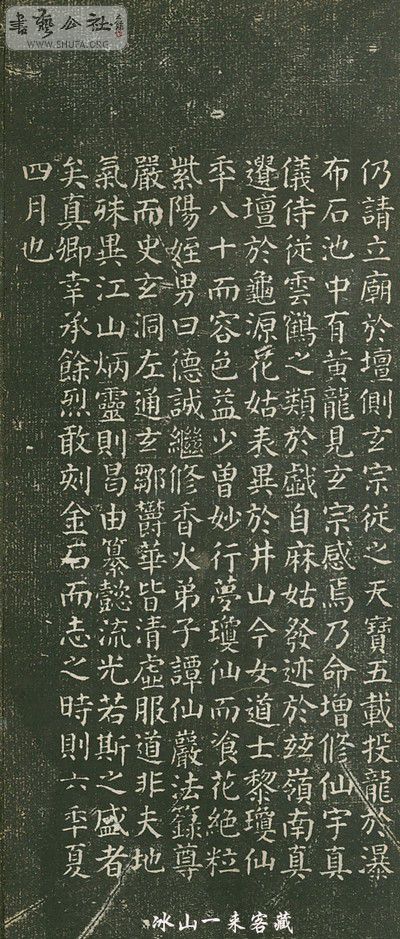 書藝公社
WWW.SHUFA.ORG
仍請立廟於壇側玄宗從之天寶五載投龍於瀑
布石池中有黃龍見玄宗感焉乃命增修仙宇真
儀侍從雲鶴之類於戲自麻姑發迹於玆嶺南真
遺壇於龜源花姑表異於井山今女道士黎瓊仙
年八十而容色益少曾妙行夢瓊仙而飡花絕粒
紫陽姪男曰德誠繼修香火弟子譚仙巖法籙尊
嚴而史玄洞左通玄鄒欝華皆清虛服道非夫地
氣殊異江山炳靈則曷由纂懿流光若斯之盛者
矣真卿幸承餘烈敢刻金石而志之時則六年夏
四月也
冰山一来客藏